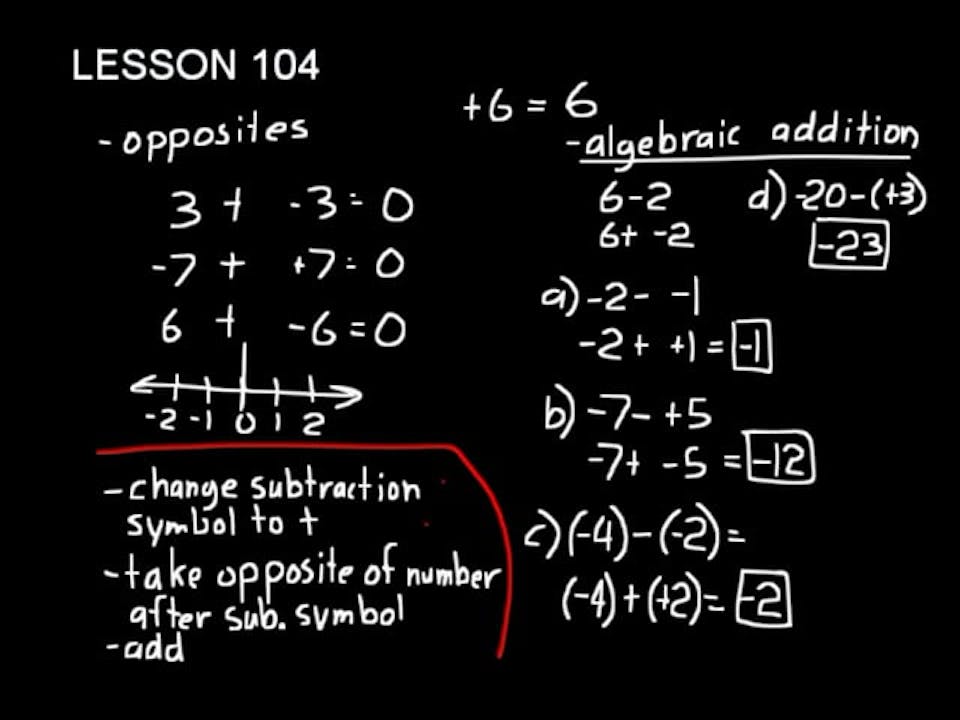 LESSON 104
- opposites
3 + -3 = 0
-7 + +7 = 0
6 + -6 = 0
-2 -1 0 1 2
- change subtraction
symbol to +
- take opposite of number
after sub. symbol
- add
+6 = 6
- algebraic addition
6-2
6+ -2
a) -2 - -1
-2 + +1 = -1
b) -7 - +5
-7 + -5 = -12
c) (-4) - (-2) =
(-4) + (+2) = -2
d) -20 - (+3)
-23